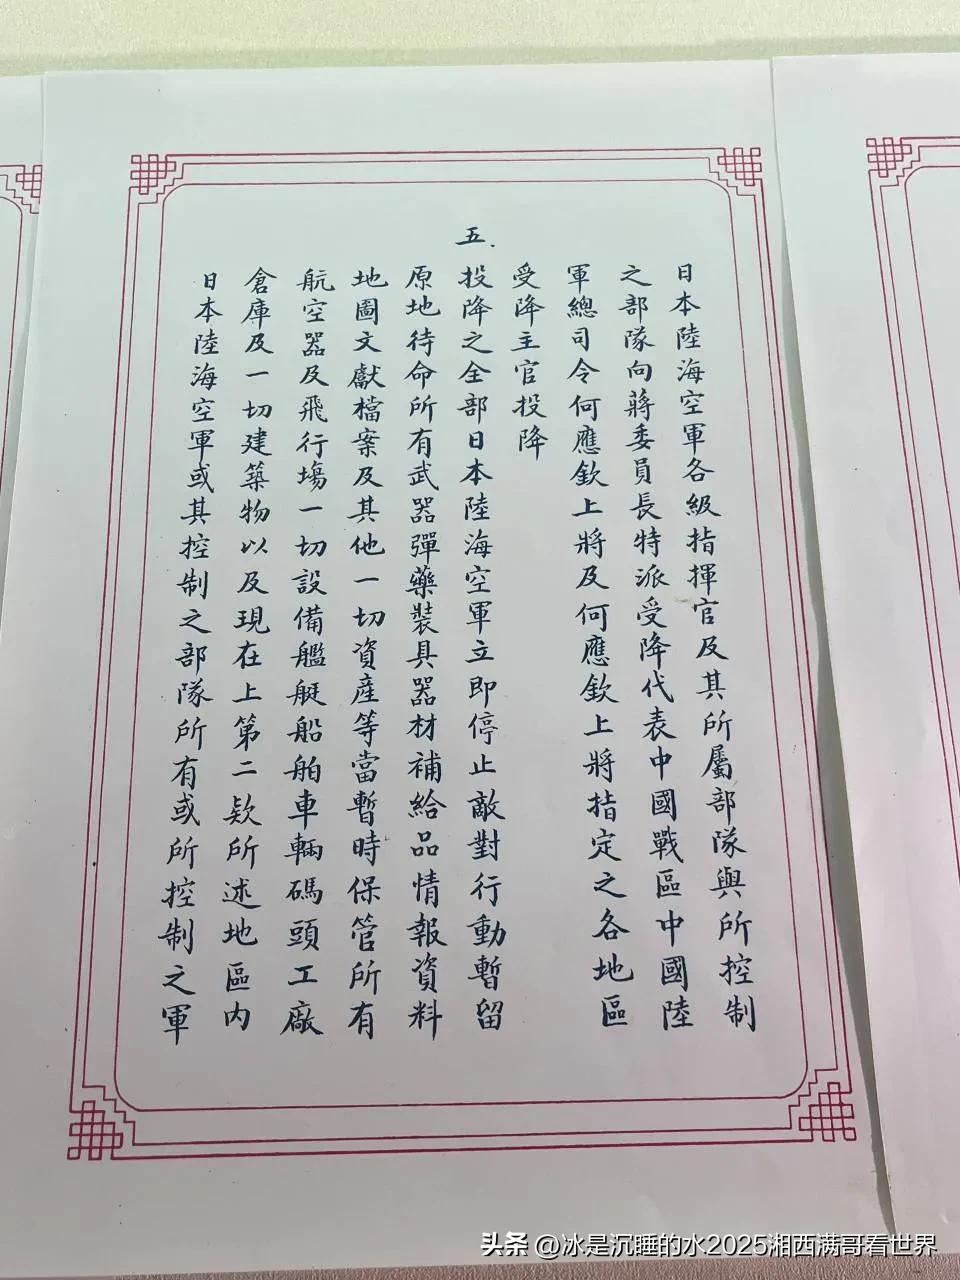 日本陸海空軍各級指揮官及其所屬部隊與所控制
之部隊向蔣委員長特派受降代表中國戰區中國陸
軍總司令何應欽上將及何應欽上將指定之各地區
受降主官投降
五.
投降之全部日本陸海空軍立即停止敵對行動暫留
原地待命所有武器彈藥裝具器材補給品情報資料
地圖文獻檔案及其他一切資產等當暫時保管所有
航空器及飛行場一切設備艦艇船舶車輛碼頭工廠
倉庫及一切建築物以及現在上第二款所述地區內
日本陸海空軍或其控制之部隊所有或所控制之軍
头条 @冰是沉睡的水2025湘西满哥看世界